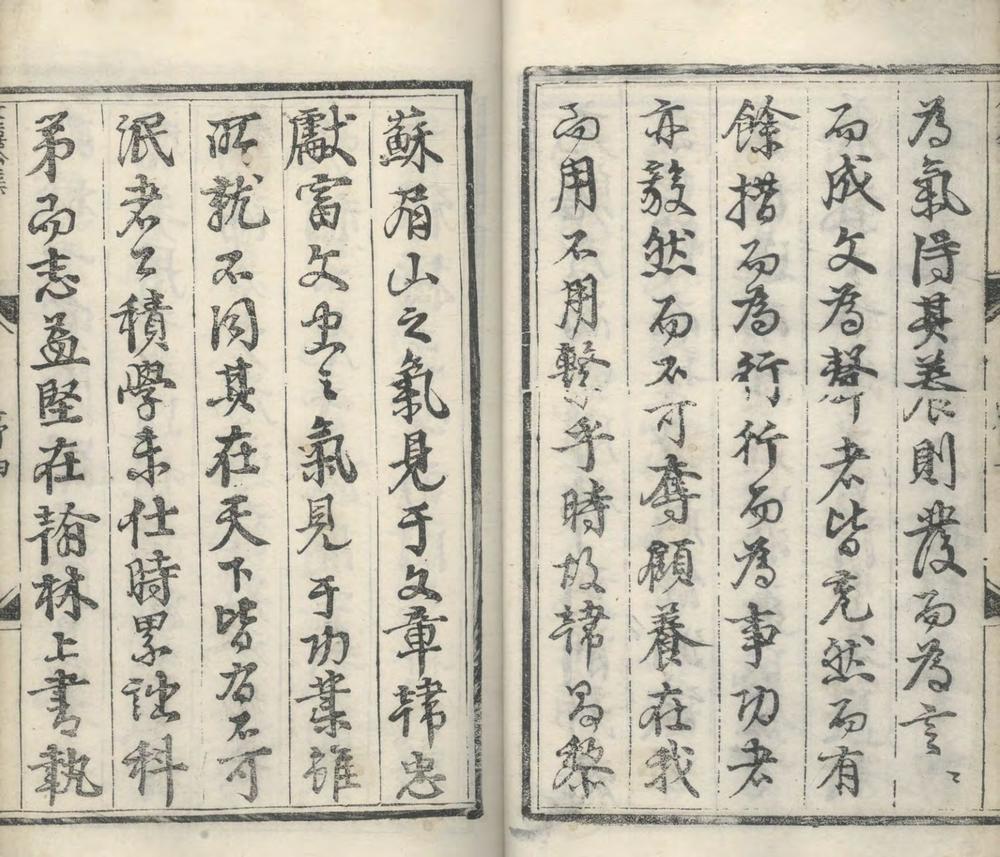 為氣得其養則發而為言言
而成文為聲者皆充然而有
餘措而為行行而為事功者
亦毅然而不可奪顧養在我
而用不用繫乎時故韓昌黎
蘇眉山之氣見于文章韓忠
獻富文忠之氣見于功業雖
所就不同其在天下皆有不可
泯者公積學未仕時累詘科
第而志益堅在翰林上書執